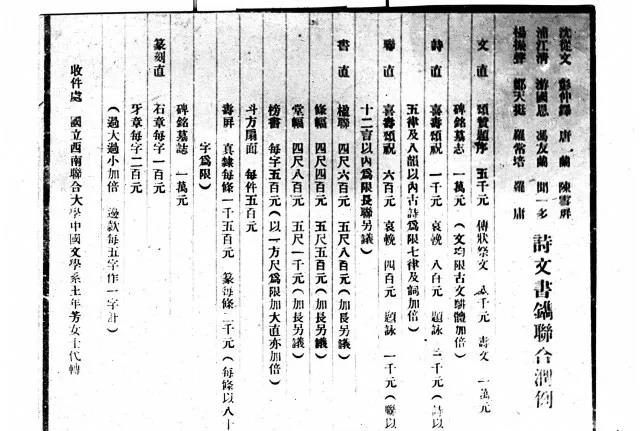 沈從文 彭仲鐸 唐蘭 陳雪屏
浦江清 游國恩 馮友蘭 聞一多
楊振聲 鄭天挺 羅常培 羅庸
詩文書鐫聯合潤例
文直 頌贊題序 五千元 傳狀祭文 八千元 壽文 一萬元
碑銘墓志 一萬元(文均限古文駢體加倍)
詩直 喜壽頌祝 一千元 哀輓 八百元 題詠 千元(詩以
五律及八韻以內古詩爲限七律及詞加倍)
聯直 喜壽頌祝 六百元 哀輓 四百元 題詠 一千元(聯以
十二言以內爲限長聯另議)
書直 楹聯 四尺六百元 五尺八百元(加長另議)
條幅 四尺四百元 五尺五百元(加長另議)
堂幅 四尺八百元 五尺一千元(加長另議)
榜書 每字五百元(以一方尺爲限加大直亦加倍)
斗方扇面 每件五百元
壽屏 真隸每條一千五百元 篆每條二千元(每條以八十
字爲限)
碑銘墓誌 一萬元
篆刻直 石章每字一百元
牙章每字二百元
(過大過小加倍 邊款每五字作一字計)
收件處 國立西南聯合大學中國文學系王年芳女士代轉